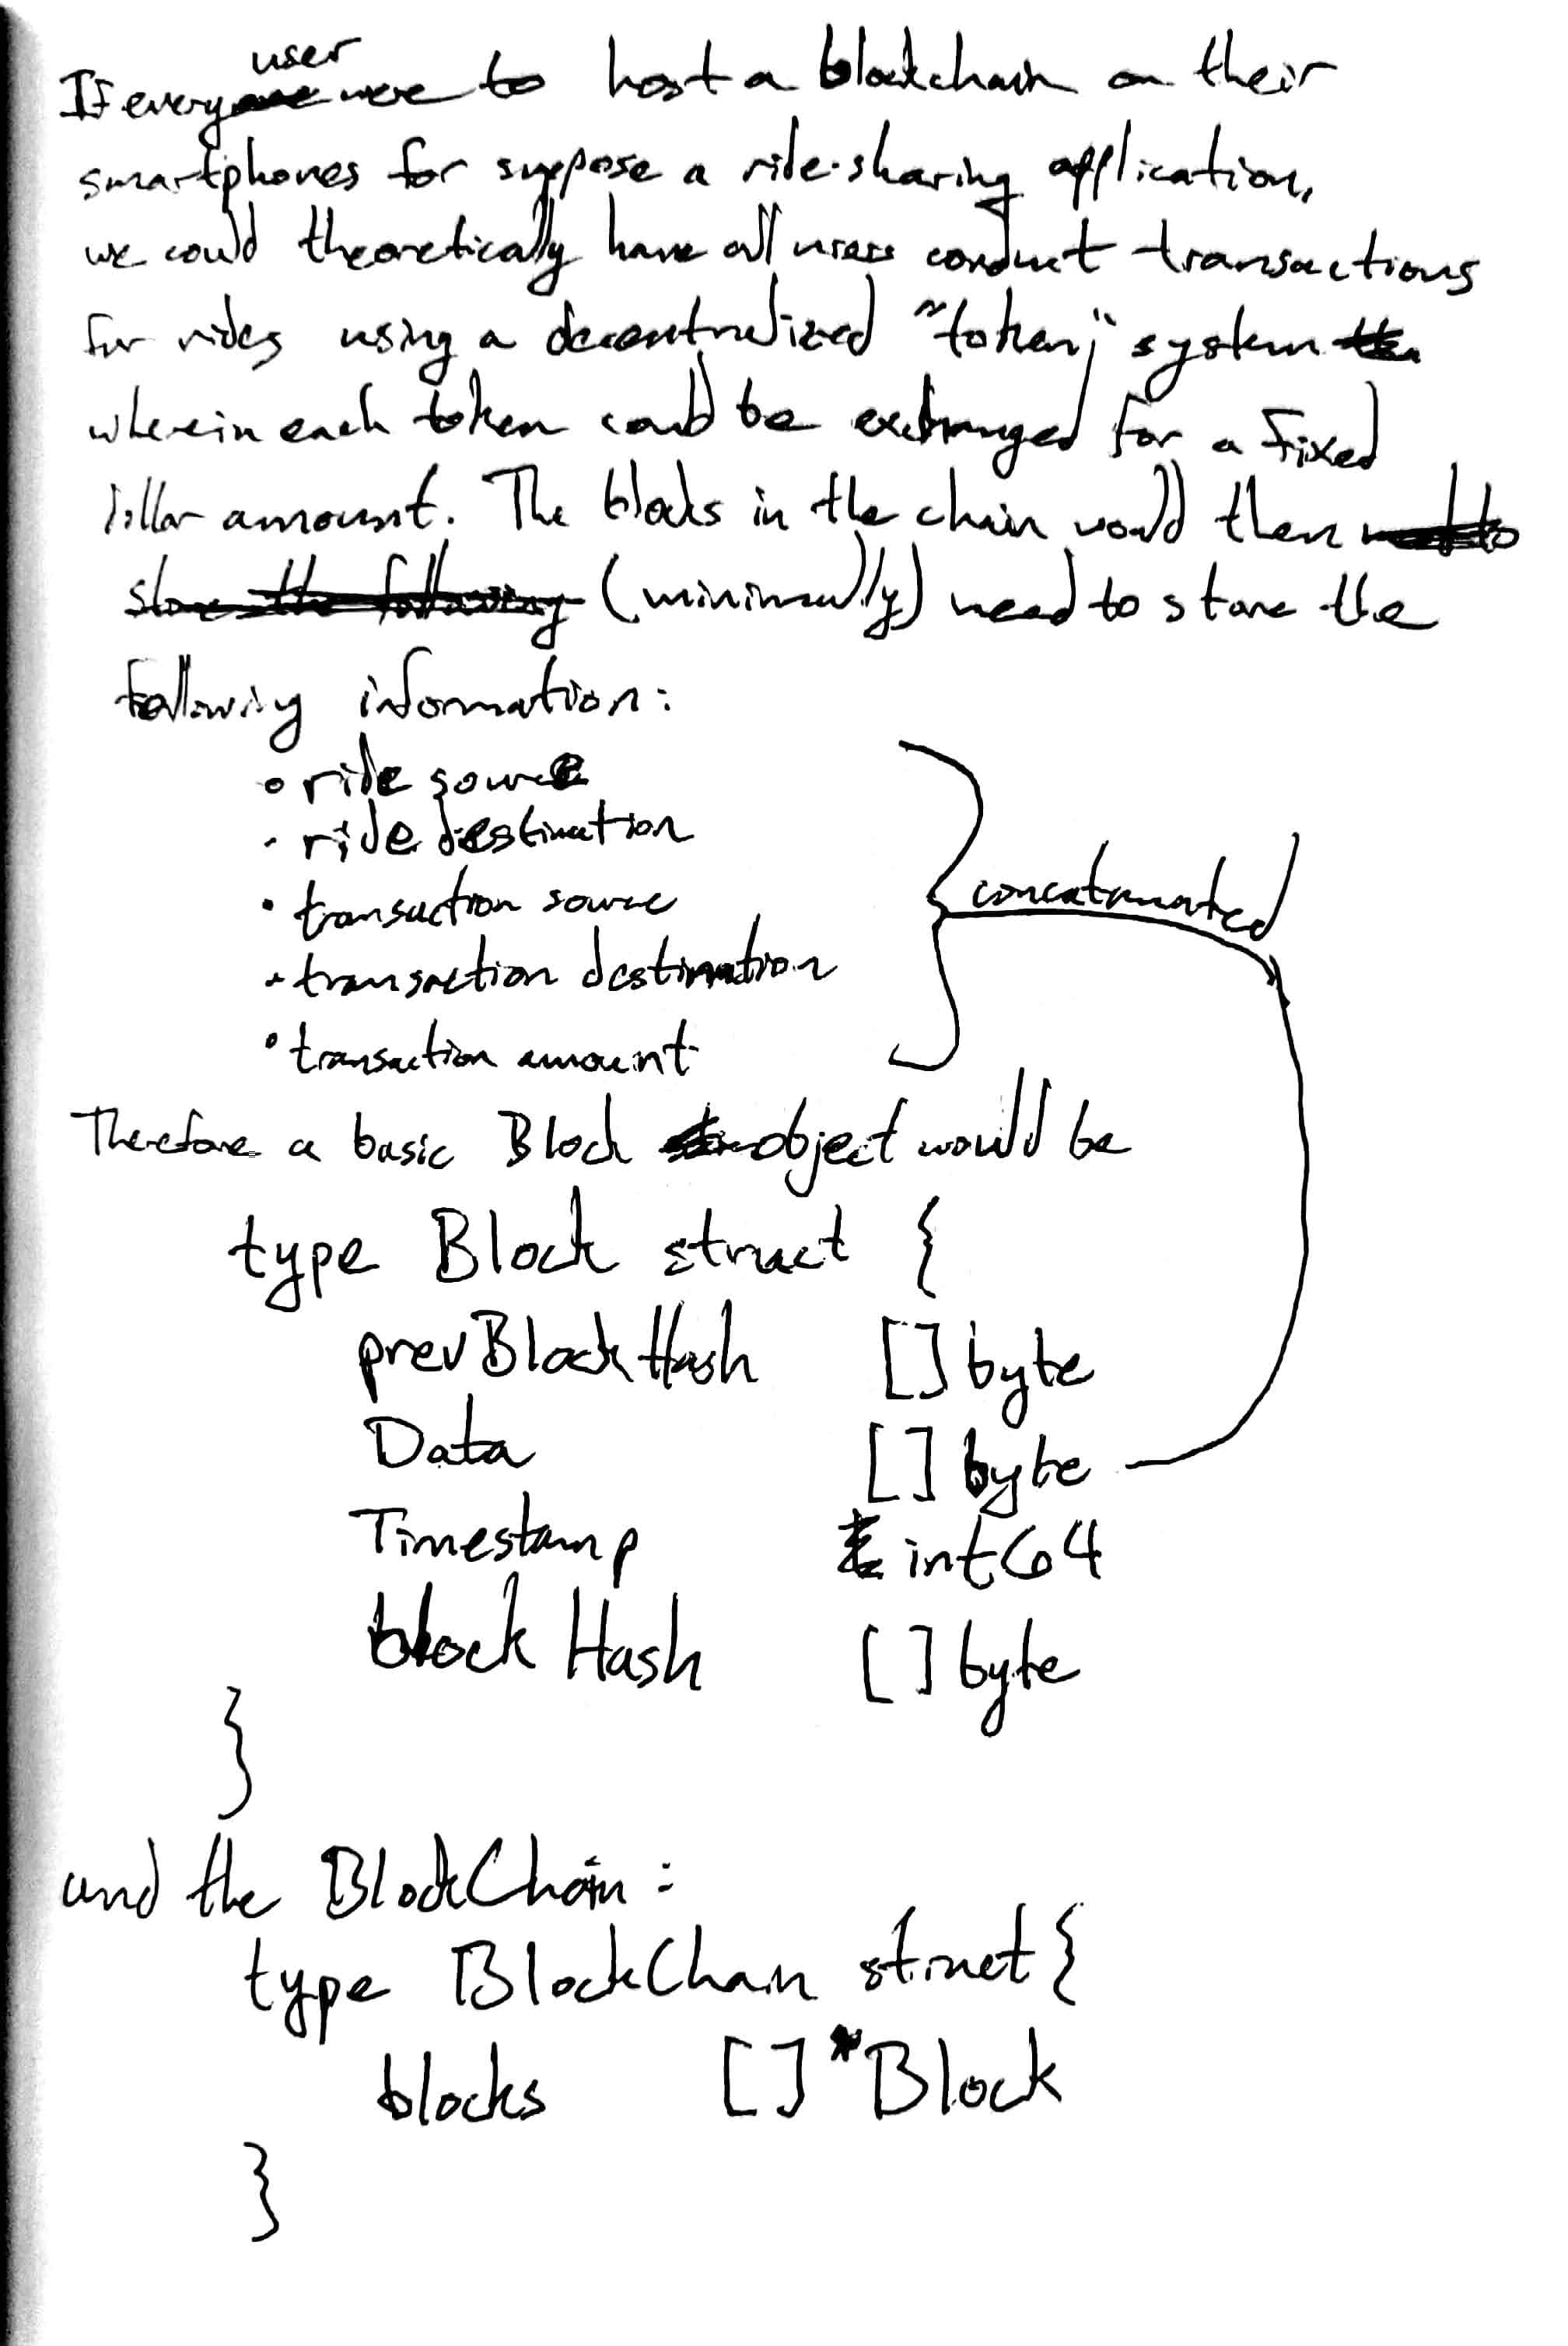 If every user were to host a blockchain on their
smartphones for suppose a ride-sharing application,
we could theoretically have all users conduct transactions
for rides using a decentralized "token" system
wherein each token could be exchanged for a fixed
dollar amount. The blocks in the chain would then
(minimally) need to store the
following information:
◦ ride source
· ride destination
· transaction source
· transaction destination
· transaction amount
} concatenated
Therefore a basic Block object would be
type Block struct {
prevBlockHash []byte
Data []byte
Timestamp int64
blockHash []byte
}
and the BlockChain:
type BlockChain struct {
blocks []*Block
}